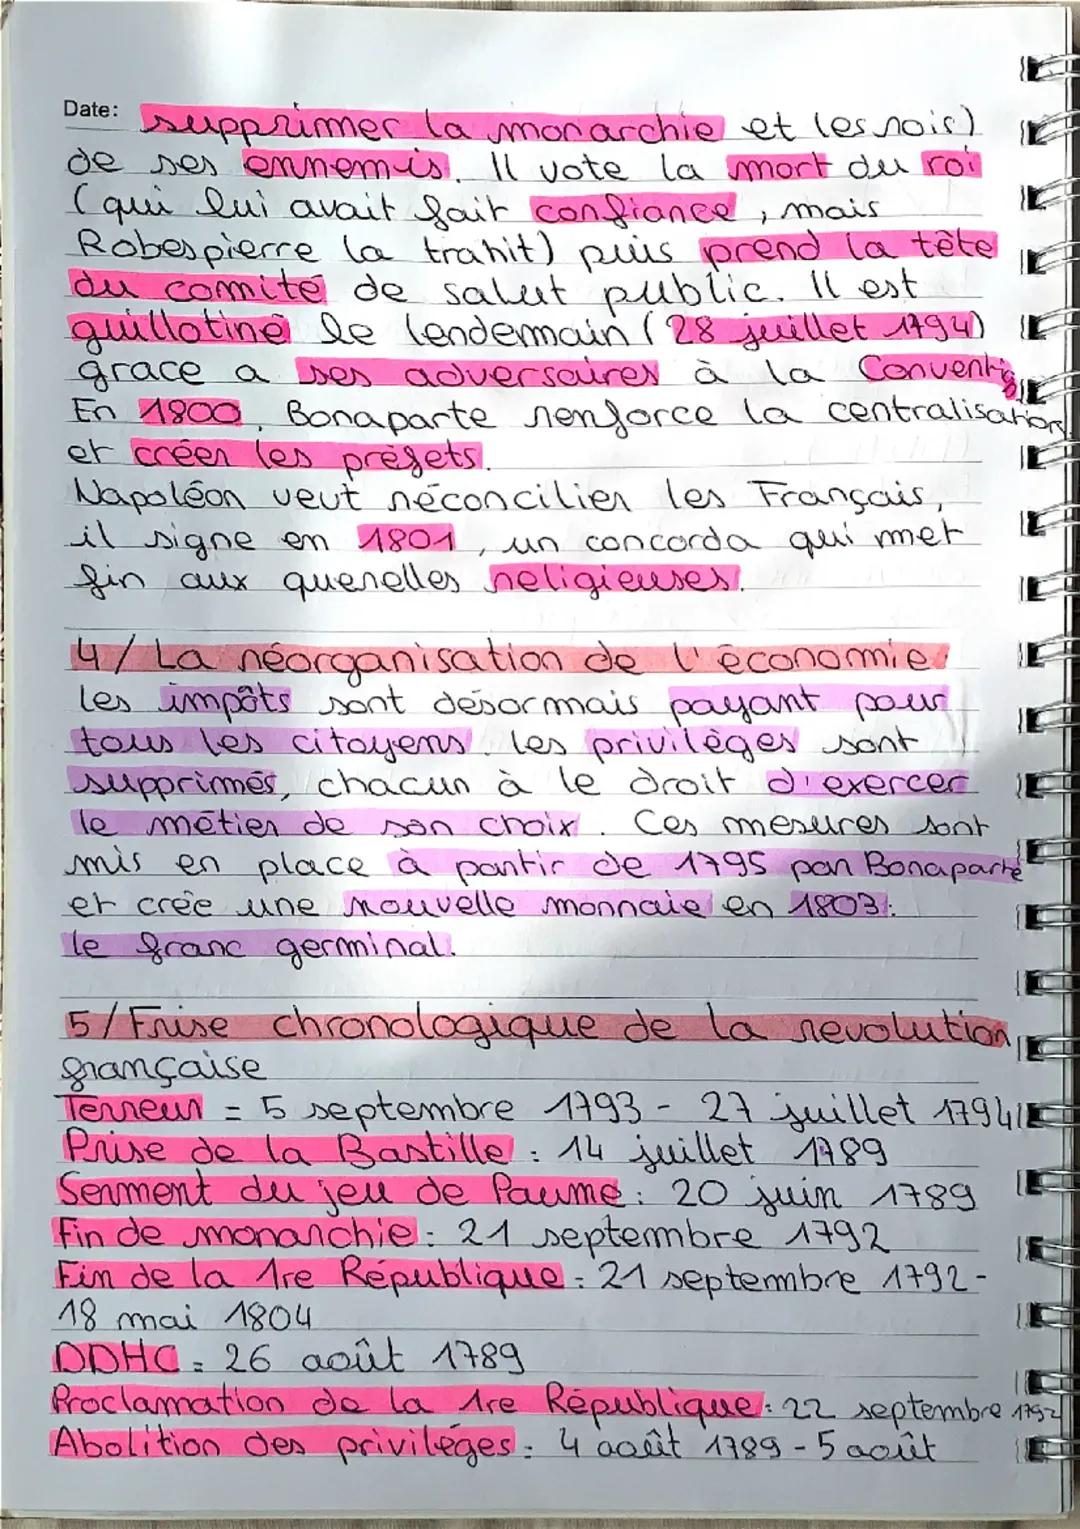 Date: supprimer la monarchie et les rois)
de ses ennemis. Il vote la mort du roi
(qui lui avait fait confiance, mais
Robespierre la trahit) puis prend la tête
du comité de salut public. Il est
guillotiné le lendemain (28 juillet 1794)
grace a ses adversaires à la Conventio
En 1800, Bonaparte renforce la centralisation
et créer les préfets.
Napoléon veut réconcilier les Français,
il signe en 1801, un concorda qui met
fin aux querelles religieuses.
4/ La réorganisation de l'économie:
les impôts sont désormais payant pour
tous les citoyens. les privilèges sont
supprimés, chacun à le droit d'exercer
le métier de son choix. Ces mesures sont
mis en place à partir de 1795 par Bonaparte
et crée une nouvelle monnaie en 1803:
le franc germinal.
5/ Frise chronologique de la revolution
française
Terreur = 5 septembre 1793 - 27 juillet 1794
Prise de la Bastille : 14 juillet 1789
Serment du jeu de Paume : 20 juin 1789
Fin de monarchie : 21 septembre 1792
Fin de la 1re République = 21 septembre 1792-
18 mai 1804
DDHC = 26 août 1789
Proclamation de la 1re République : 22 septembre 1792
Abolition des privilèges : 4 août 1789 - 5 août